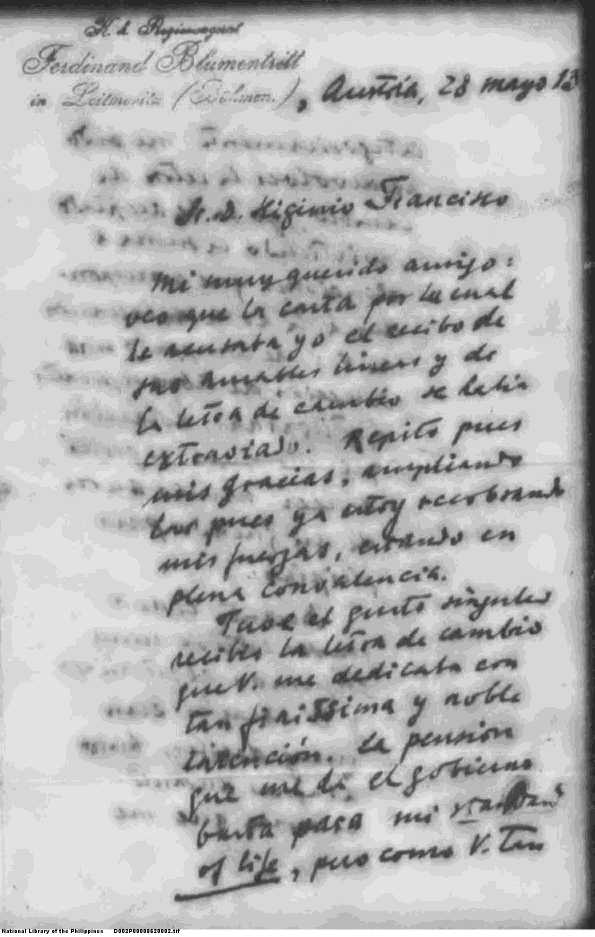 K. k. Regierungsrat
Ferdinand Blumentritt
in Leitmeritz (Böhmen.), Austria, 28 mayo 13
Sr. D. Higinio Francisco
Mi muy querido amigo:
veo que la carta por la cual
le acusaba yo el recibo de
sus amables lineas y de
la letra de cambio se habia
extraviado. Repito pues
mis gracias, ampliando
los pues ya estoy recobrando
mis fuerzas, estando en
plena convalencia.
Tuve el gusto singular
recibir la letra de cambio
que V. me dedicaba con
tan finissima y noble
intención. La pension
que me da el gobierno
basta para mi standard
of life, pero como V. tan
National Library of the Philippines D002P00000620002.tif